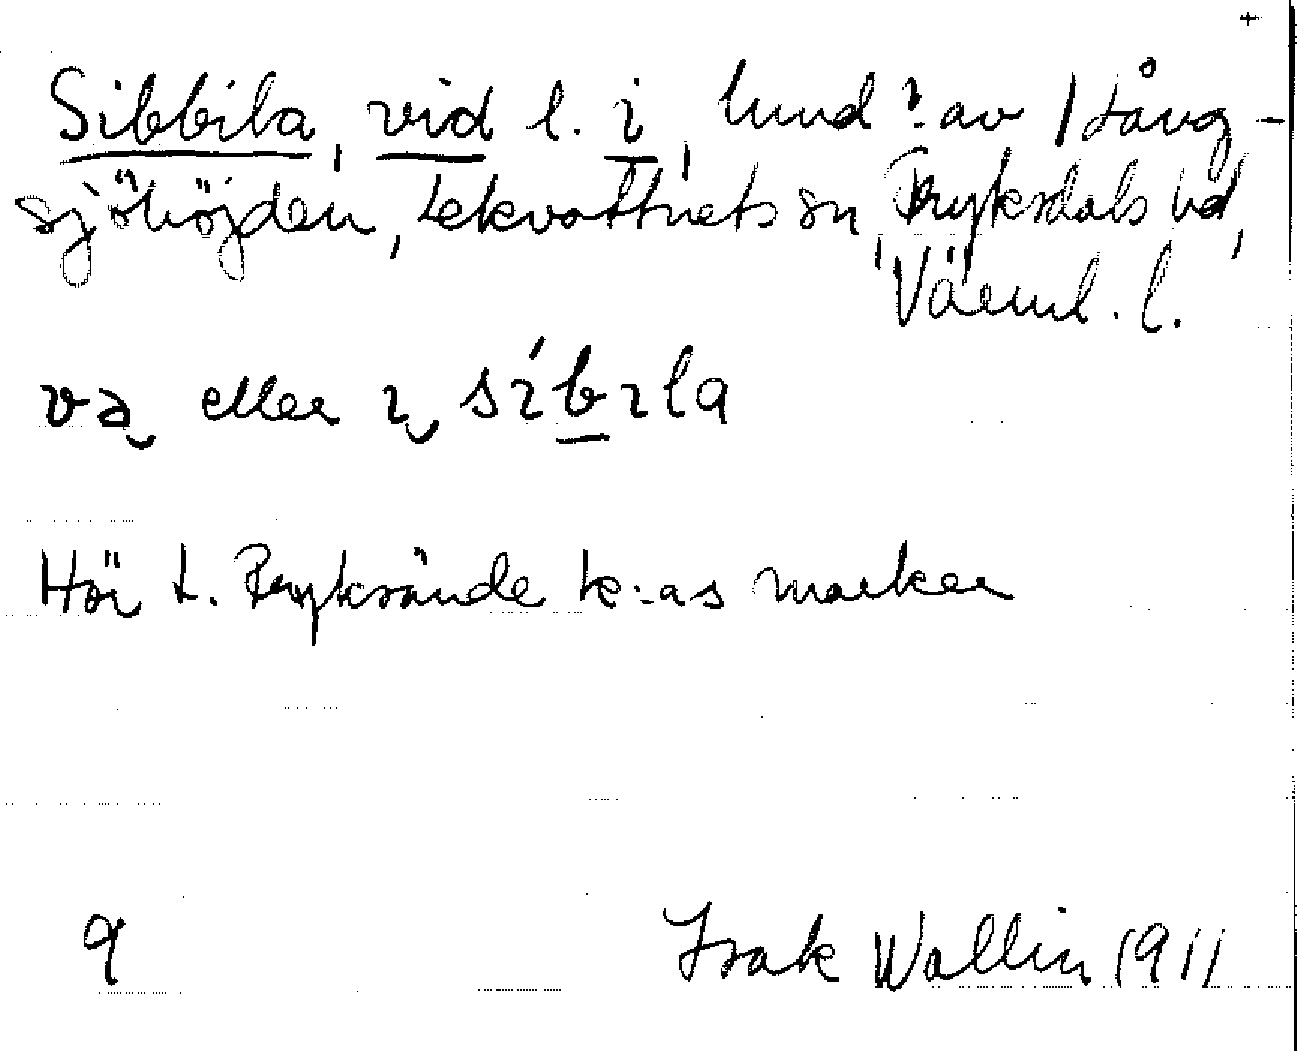 Sibbila, vid l. i, lund ? av Stång-
sjöhöjden, Lekvattnets sn, Fryksdals hd,
Värml. l.
va eller ı síbıla
Hör t. Fryksände k:as marker
9 Isak Wallin 1911